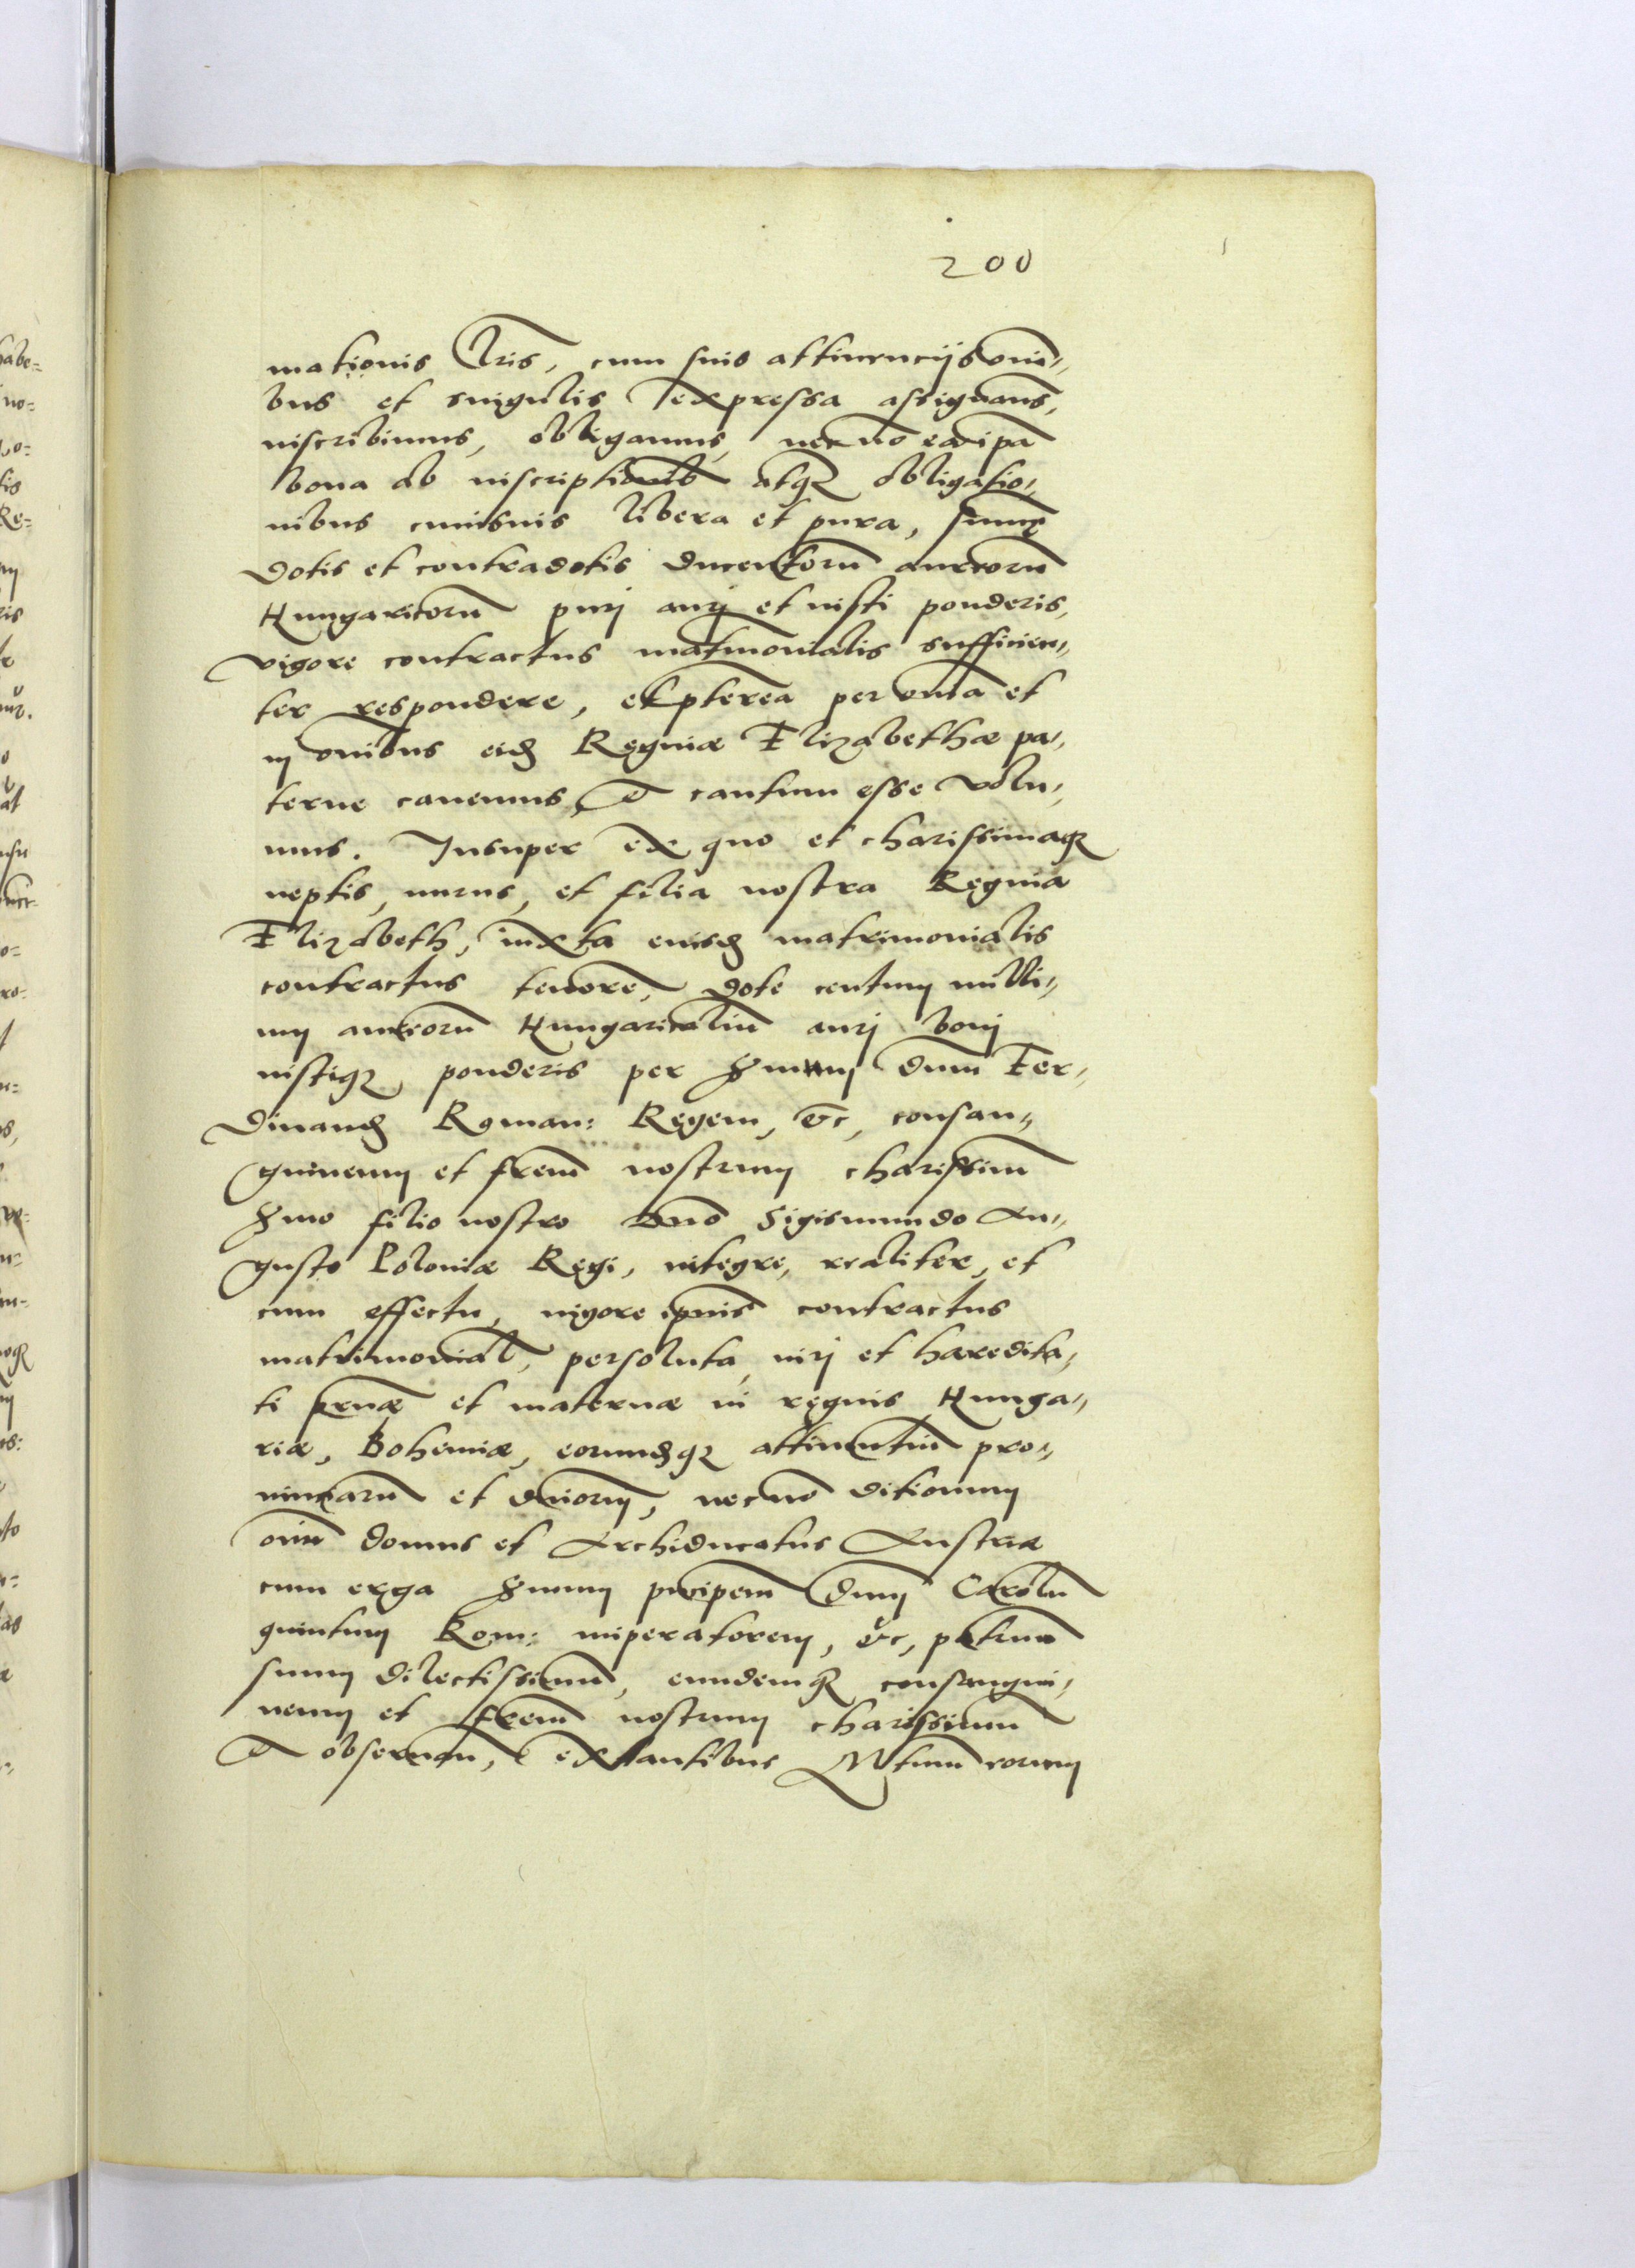 200
mationis lris, cum suis attinencijs omi-
bus et singulis expressa assignams,
inscribimus, obligamus, nec no ea ipa
bona ab inscriptionib atq obligatio-
nibus cuiusuis libera et pura, summe
dotis et contradotis ducentorum aureorum
Hungaricorum puri auri et iusti ponderis,
vigore contractus matrimonialis sufficien-
ter respondere, et pterea per omia et
in omibus eid Reginæ Elizabethæ pa-
terne cauemus, & cautum esse volu-
mus. Insuper ex quo et charissima q
neptis, nurus, et filia nostra Regina
Elizabeth, iuxta eiusd matrimonialis
contractus tenore, dote centum milli-
um aureorum Hungaricalium auri boni
iustiq ponderis per Smum dnum Fer-
dinand Roman: Regem, &c, consan-
guineum et frem nostrum charissim
Smo filio nostro dno Sigismundo Au-
gusto Poloniæ Regi, integre, realiter, et
cum effectu, uigore ipius contractus
matrimonial, persoluta, iuri et hæredita-
ti prnæ et maternæ in regnis Hunga-
riæ, Bohemiæ, eorumdq attinentium pro-
uinciarum et dniorum, nec no ditionum
oium domus et Archiducatus Austriæ
cum erga Smum principem Dnum Carolum
quintum Rom: imperatorem, &c, patruum
suum dilectissimum, eundemq consangui-
neum et frem nostrum charissimum
& obseruan, extantibus Mtum eorum